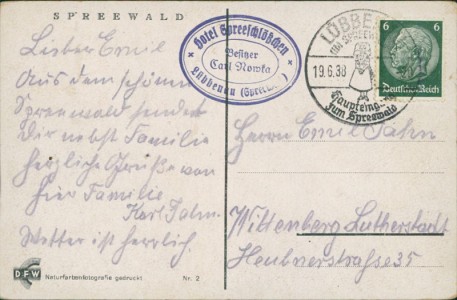 SPREEWALD
Lieber Emil
Aus dem schönen
Spreewald sendet
Dir nebst Familie
herzliche Grüße von
hier Familie
Karl Jahn.
Wetter ist herrlich.
DFW
Naturfarbenfotografie gedruckt Nr. 2
Hotel Spreeschlößchen
Besitzer
Carl Nowka
Lübbenau (Spreewald)
LÜBBE
19.6.38
Haupteing
zum Spreewald
6 6
Deutsches Reich
Herrn Emil Jahn
Wittenberg Lutherstadt
Heubnerstraße 35